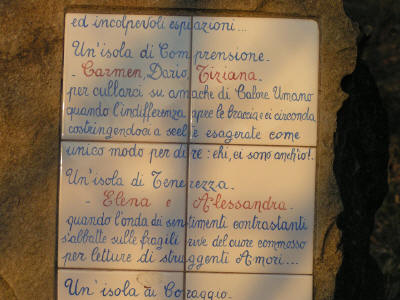 ed incolpevoli espiazioni...
Un'isola di Comprensione.
- Carmen, Dario, Tiziana -
per cullarci su amache di Calore Umano
quando l'indifferenza apre le braccia e ci circonda
costringendoci a scelte esagerate come
unico modo per dire: ehi, ci sono anch'io!.
Un'isola di Tenerezza -
- Elena e Alessandra -
quando l'onda di sentimenti contrastanti
s'abbatte sulle fragili rive del cuore commosso
per letture di struggenti Amori...
Un'isola di Coraggio.